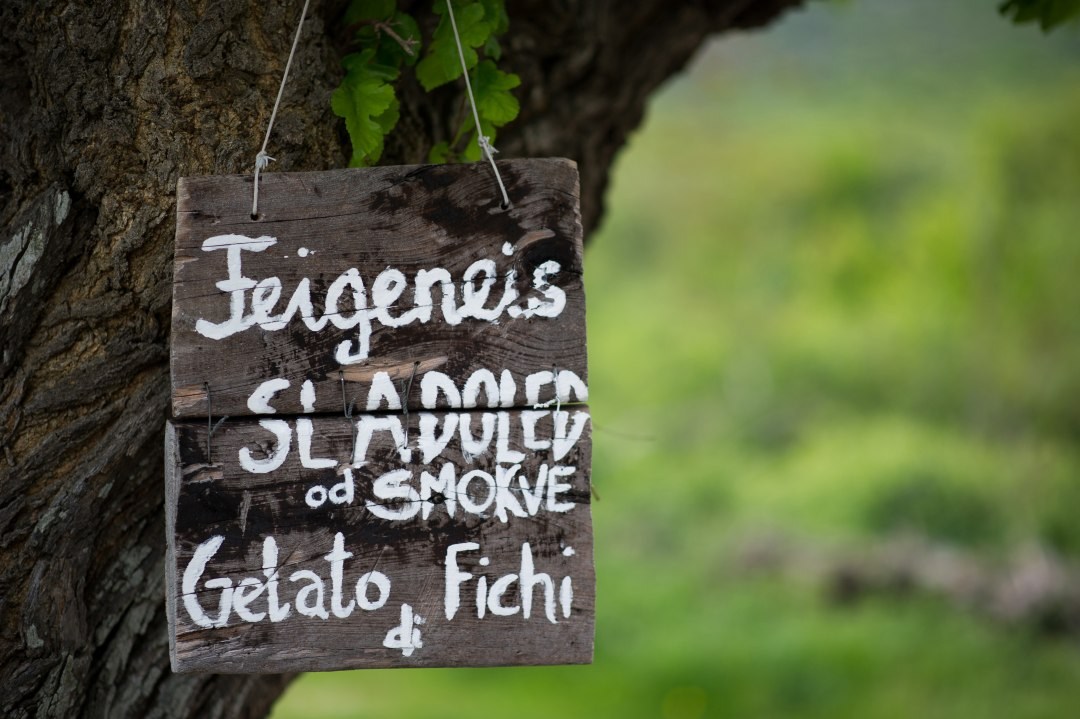 Feigeneis
SLADOLED
od SMOKVE
Gelato di Fichi